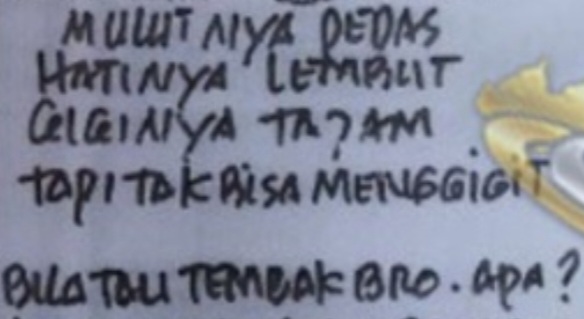 MULUTNYA PEDAS
HATINYA LEMBUT
GIGINYA TAJAM
TAPI TAK BISA MENGGIGIT
BILA TAU TEMBAK BRO. APA?